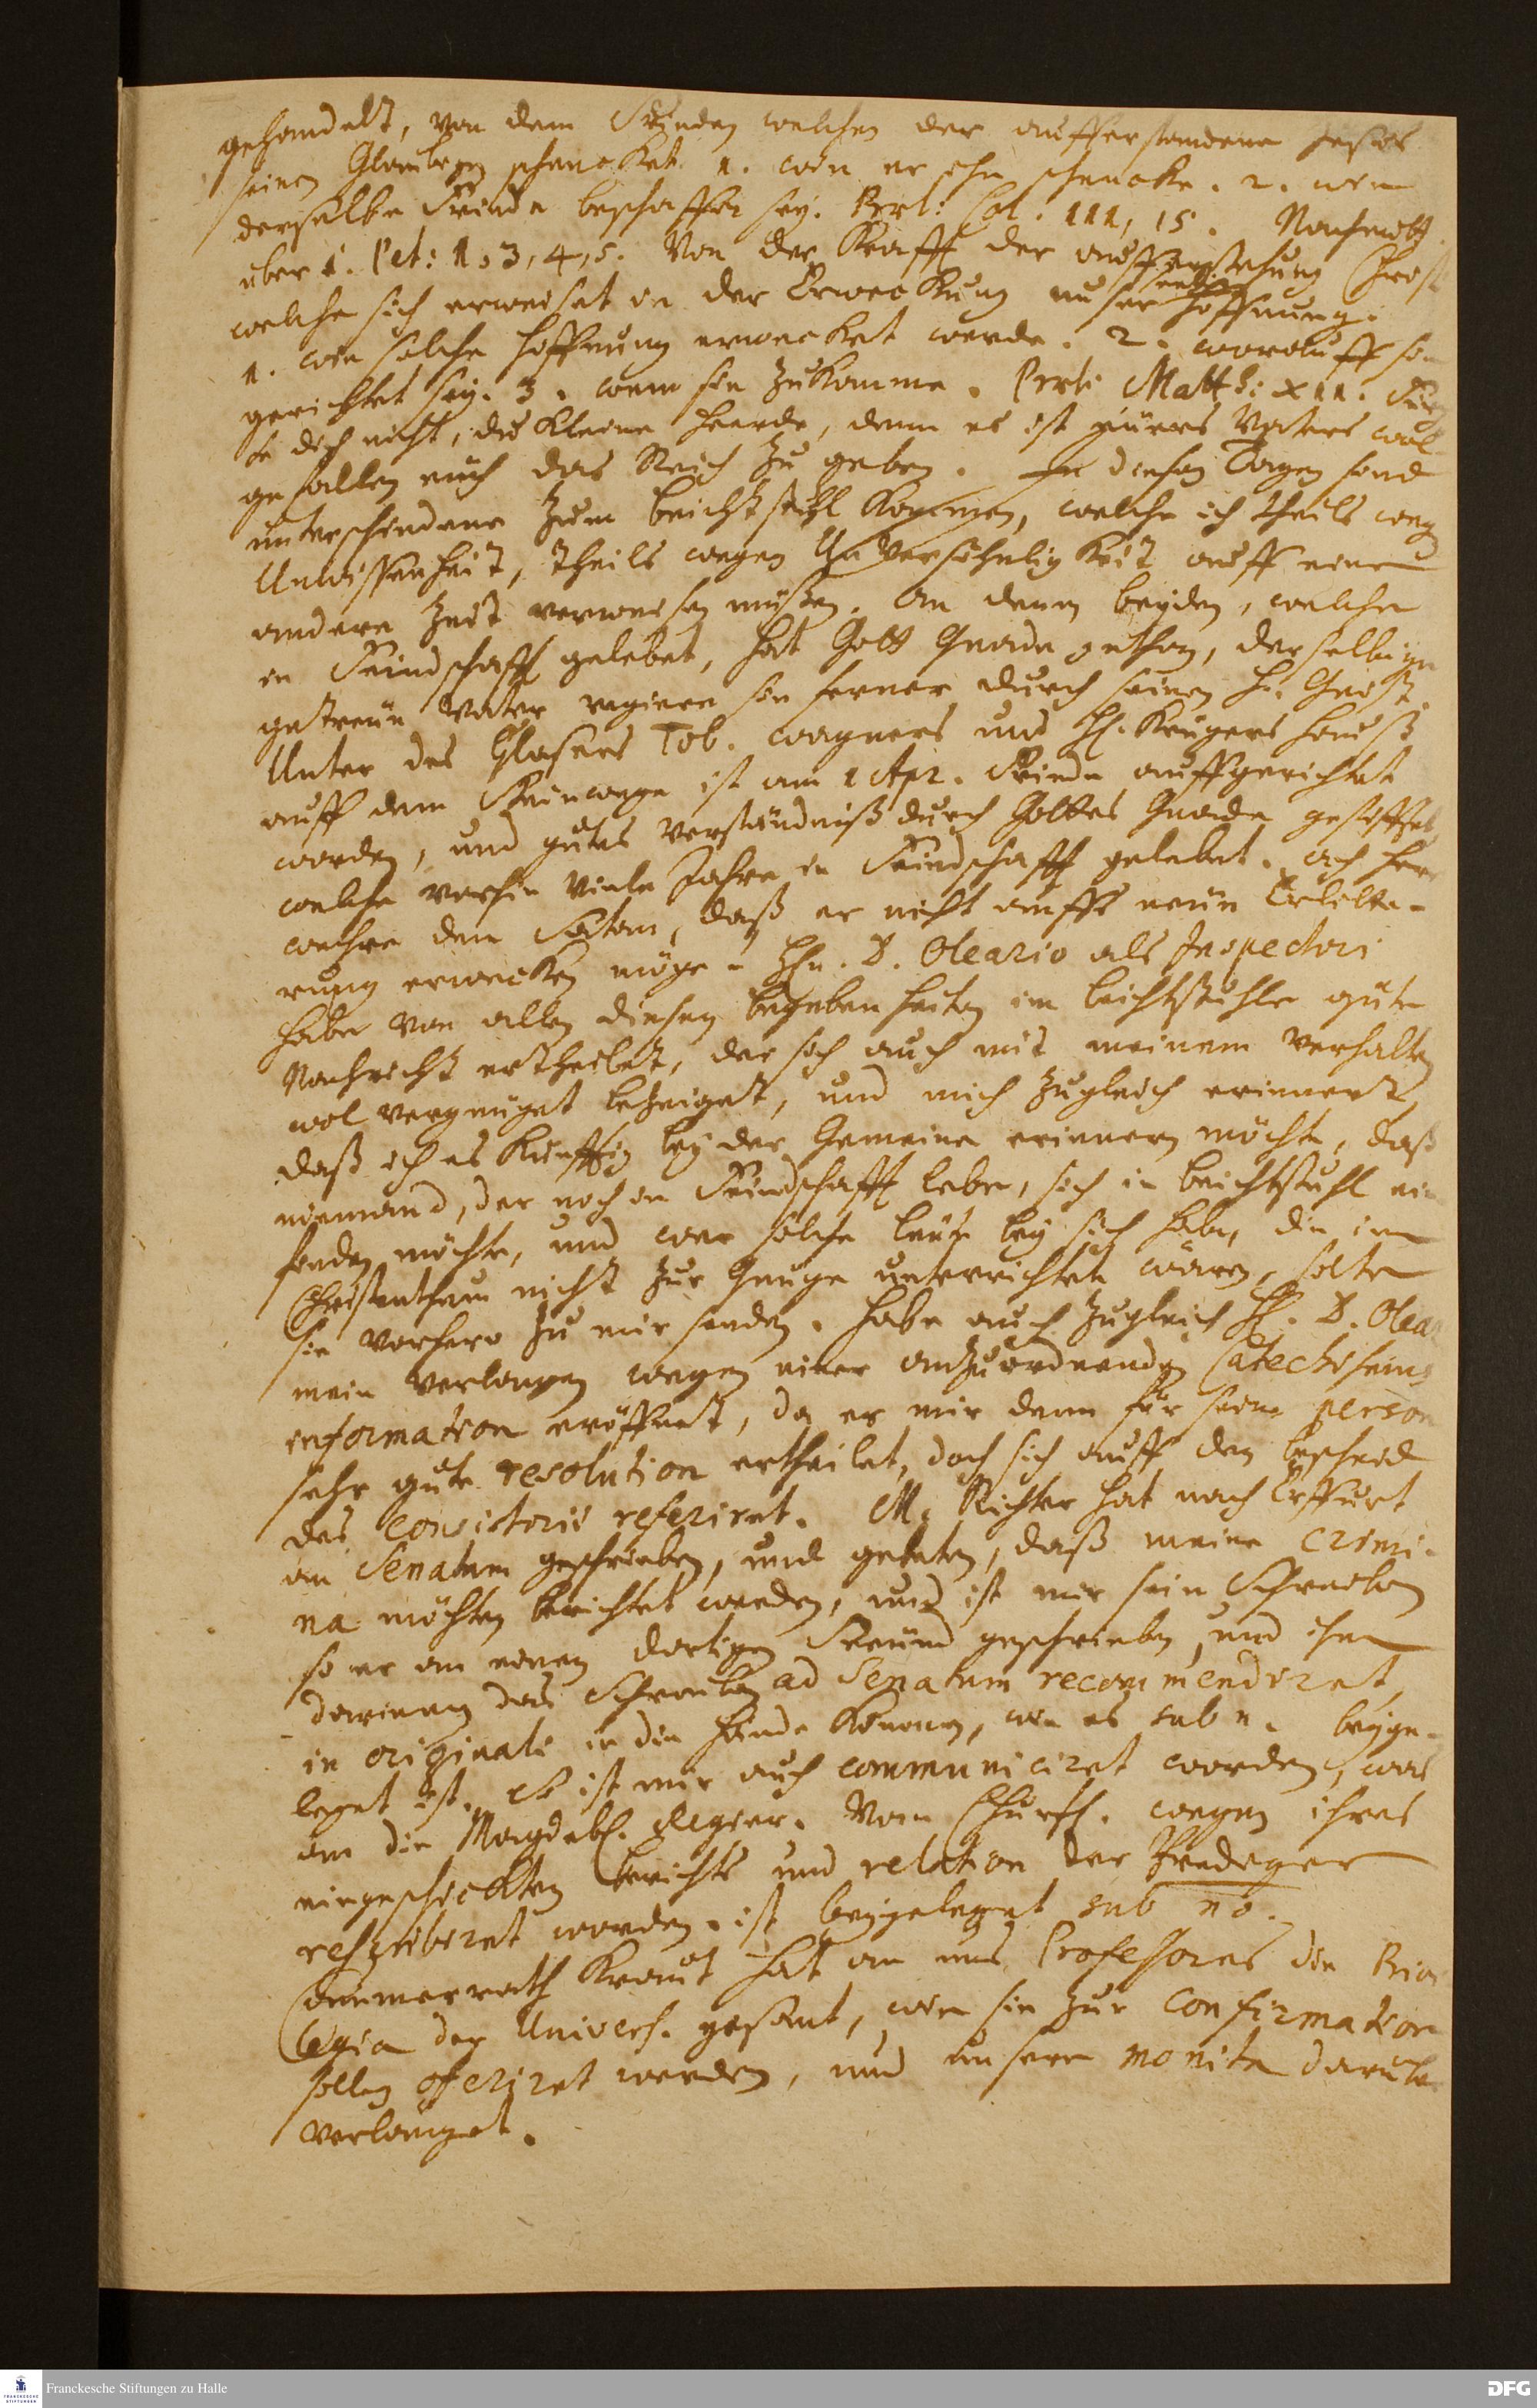 gehandelt, von dem Frieden welchen der aufferstandene Jesus
seinen Gläubigen schencket. 1. wie er ihn schencke. 2. wem
derselbe Friede beschaffen sey. Exrl: Col. III, 15. Nachmitt.
über 1. Pet: 1. 3, 4, 5. Von der Krafft der aufferstehung Christi
welche sich erweiset in der Erweckung unser Hoffnung.
1. wie solche Hoffnung erwecket werde. 2. worauff sie
gerichtet sey. 3. wem sie zukomme. Exrl: Matth: XII. Fürch
te dich nicht, du kleine Heerde, denn es ist eüers Vaters wol
gefallen euch das Reich zu geben. In diesen Tagen sind
unterschiedene zum beichtstuhl kommen, welche ich theils wegen
Unwissenheit, theils wegen Unversöhnligkeit auff eine
andere Zeit verweisen müßen. An denen beyden, welche
in Feindschafft gelebet, hat Gott Gnade gethan, derselbige
getreüe Vater regiere sie ferner durch seinen H. Geist.
Unter des Glasers Tob. Wagners und H. Krügers Hauß
auff dem Steinwege ist am 1 Apr. Friede auffgerichtet
worden, und gutes verständniß durch Gottes Gnade gestifftet,
welche vorhin viele Jahre in Feindschafft gelebet. ach Herr
wehre dem Satan, daß er nicht auffs neüe Erbitte-
rung erwecken möge. Hn. D. Oleario als Inspectori
habe von allen diesen begebenheiten im beichtstuhle gute
Nachricht ertheilet, der sich auch mit meinem verhalten
wol vergnüget bezeiget, und mich zugleich erinnert
daß ich es künfftig bey der Gemeine erinnern möchte, daß
niemand, der noch in Feindschafft lebe, sich in beichtstuhl ein
finden möchte, und wer solche leute bey sich habe, die im
Christenthum nicht zur Gnüge unterrichtet wären, solte
sie vorhero zu mir senden. Habe auch zugleich H. D. Olea
mein verlangen wegen einer anzuordnenden Catechismus
information eröffnet, da er mir denn für seine person
sehr gute resolution ertheilet, doch sich auff den bescheid
des Consistorii referiret. M. Richter hat nach Erffurt
an Senatum geschrieben, und gebeten, daß meine crimi-
na möchten berichtet werden, und ist mir sein Schreiben
so er an einen dortigen Freund geschrieben und ihm
darinnen das Schreiben ad Senatum recommendiret,
in originali in die Hände kommen, wie es sub n. beyge-
leget ist. Es ist mir auch communiciret worden, was
an die Magdeb. Regier. vom Churf. wegen ihres
eingeschickten berichts und relation der Prediger
rescribiret worden. ist beygeleget sub no.
Cammerrath Kraut hat an uns Professores die Privi
legia der Univers. gesant, wie sie zur Confirmation
sollen offeriret werden, und unsere monita darüber
verlanget.
Franckesche Stiftungen zu Halle
DFG